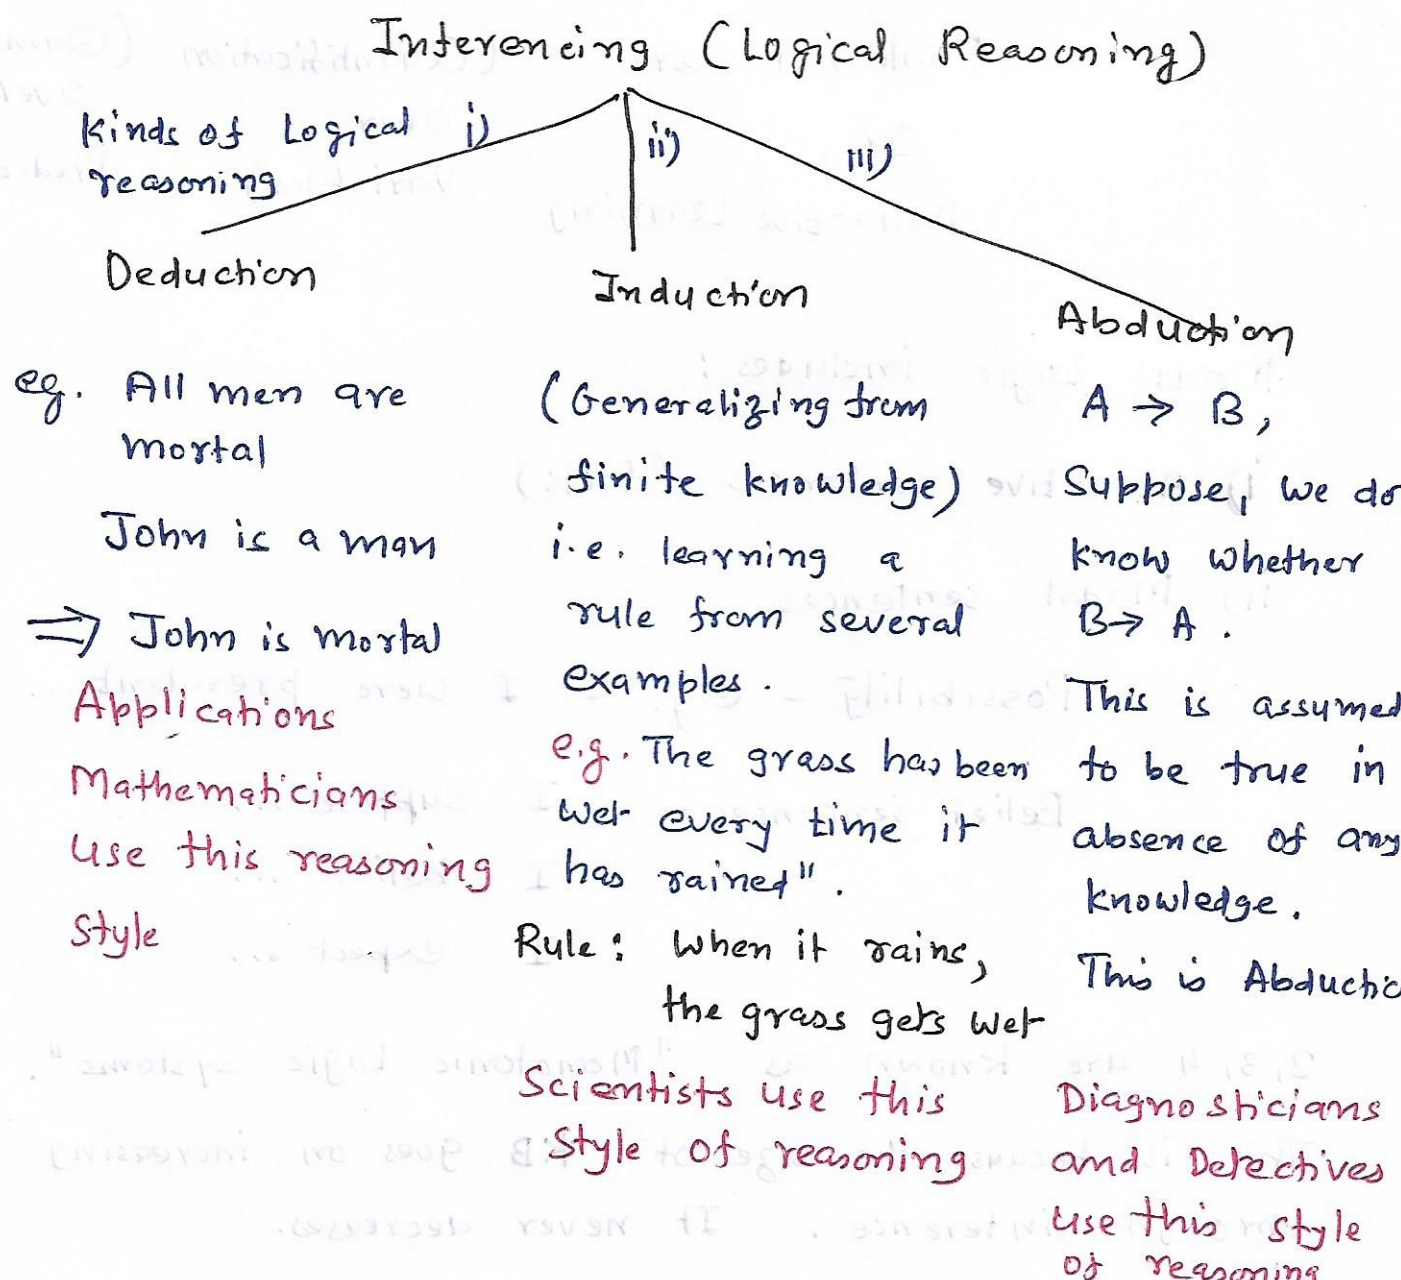 Inferencing (Logical Reasoning)
Kinds of Logical
reasoning
i)
ii)
iii)
Deduction
Induction
Abduction
eg. All men are
mortal
John is a man
⇒ John is mortal
Applications
Mathematicians
use this reasoning
style
(Generalizing from
finite knowledge)
i.e. learning a
rule from several
examples.
e.g. The grass has been
wet every time it
has rained".
Rule: When it rains,
the grass gets wet
Scientists use this
style of reasoning
A → B,
Suppose, we do
know whether
B → A.
This is assumed
to be true in
absence of any
knowledge.
This is Abductio
Diagnosticians
and Detectives
use this style
of reasoning